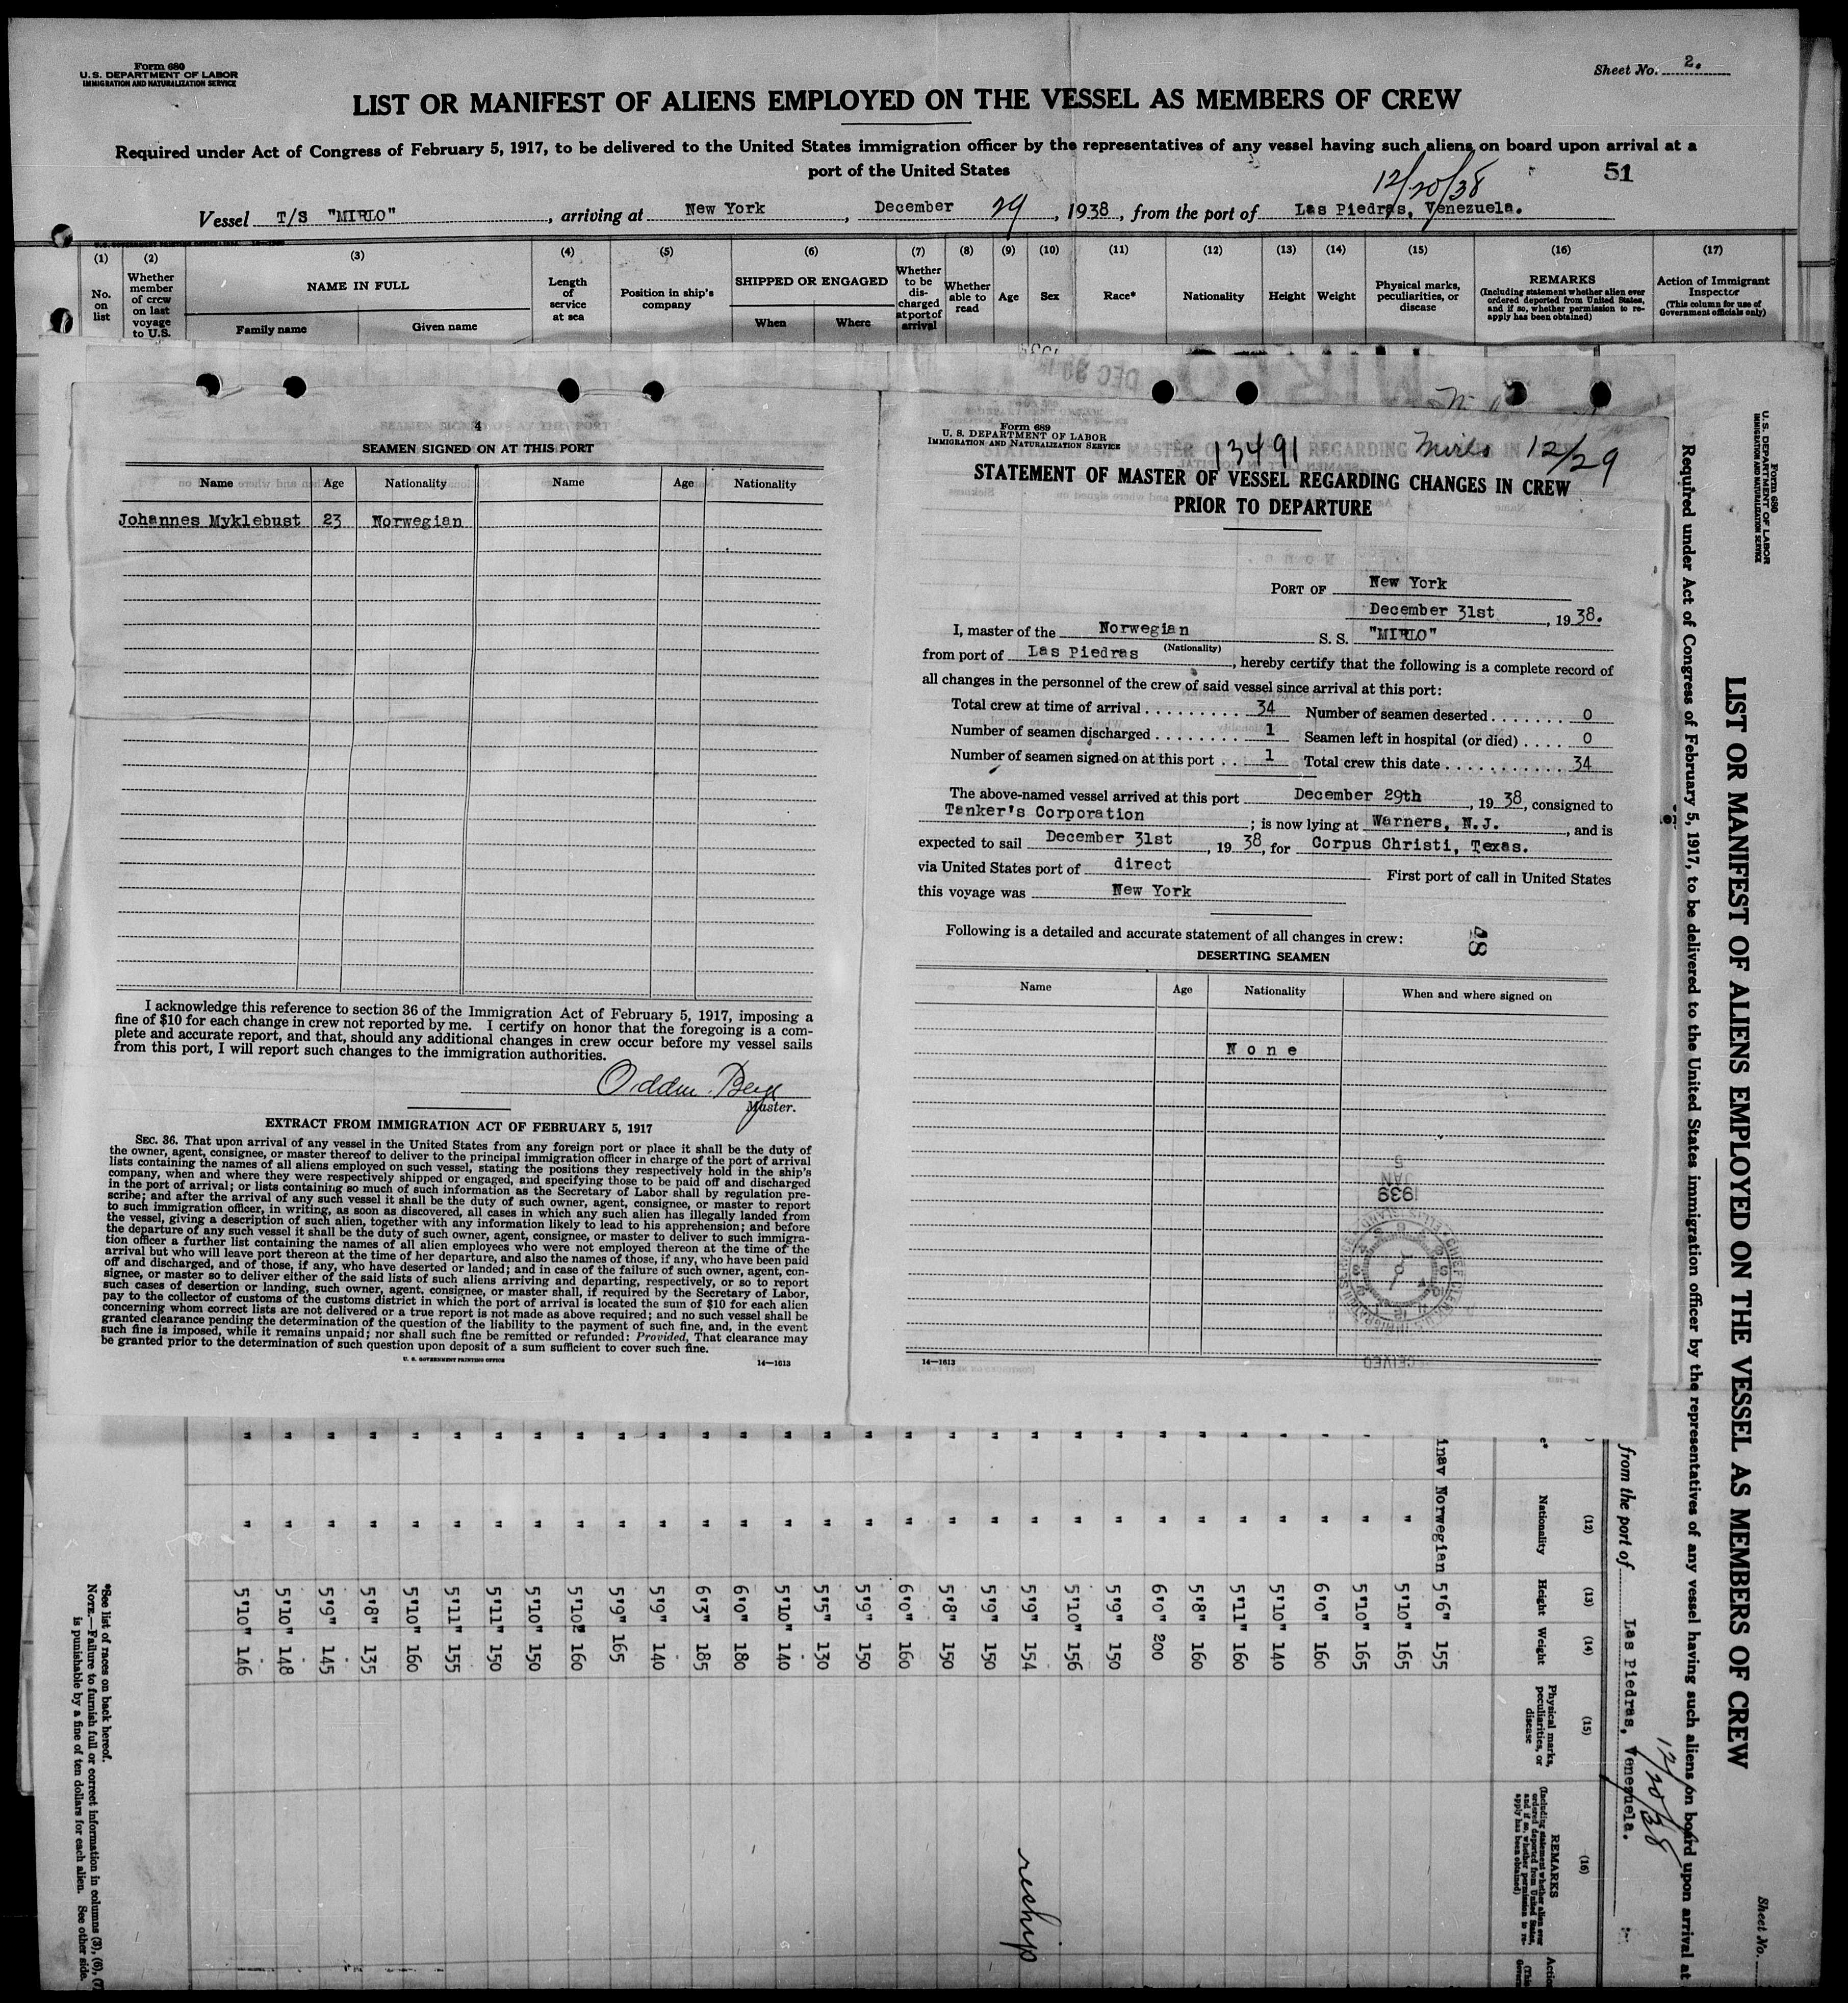 Form 680
U. S. DEPARTMENT OF LABOR
IMMIGRATION AND NATURALIZATION SERVICE
Sheet No. 2.
LIST OR MANIFEST OF ALIENS EMPLOYED ON THE VESSEL AS MEMBERS OF CREW
Required under Act of Congress of February 5, 1917, to be delivered to the United States immigration officer by the representatives of any vessel having such aliens on board upon arrival at a
port of the United States
12/20/38
51
Vessel T/S "MIRLO", arriving at New York, December 29, 1938, from the port of Las Piedras, Venezuela.
(1) (2) (3) (4) (5) (6) (7) (8) (9) (10) (11) (12) (13) (14) (15) (16) (17)
No. on list
Whether member of crew on last voyage to U.S.
NAME IN FULL
Family name
Given name
Length of service at sea
Position in ship's company
SHIPPED OR ENGAGED
When
Where
Whether to be discharged at port of arrival
Whether able to read
Age
Sex
Race*
Nationality
Height
Weight
Physical marks, peculiarities, or disease
REMARKS
(Including statement whether alien ever ordered deported from United States, and if so, whether permission to re-apply has been obtained)
Action of Immigrant Inspector
(This column for use of Government officials only)
4
SEAMEN SIGNED ON AT THIS PORT
Name Age Nationality Name Age Nationality
Johannes Myklebust 23 Norwegian
I acknowledge this reference to section 36 of the Immigration Act of February 5, 1917, imposing a
fine of $10 for each change in crew not reported by me. I certify on honor that the foregoing is a com-
plete and accurate report, and that, should any additional changes in crew occur before my vessel sails
from this port, I will report such changes to the immigration authorities.
Master.
EXTRACT FROM IMMIGRATION ACT OF FEBRUARY 5, 1917
SEC. 36. That upon arrival of any vessel in the United States from any foreign port or place it shall be the duty of
the owner, agent, consignee, or master thereof to deliver to the principal immigration officer in charge of the port of arrival
lists containing the names of all aliens employed on such vessel, stating the positions they respectively hold in the ship's
company, when and where they were respectively shipped or engaged, and specifying those to be paid off and discharged
in the port of arrival; or lists containing so much of such information as the Secretary of Labor shall by regulation pre-
scribe; and after the arrival of any such vessel it shall be the duty of such owner, agent, consignee, or master to report
to such immigration officer, in writing, as soon as discovered, all cases in which any such alien has illegally landed from
the vessel, giving a description of such alien, together with any information likely to lead to his apprehension; and before
the departure of any such vessel it shall be the duty of such owner, agent, consignee, or master to deliver to such immigra-
tion officer a further list containing the names of all alien employees who were not employed thereon at the time of the
arrival but who will leave port thereon at the time of her departure, and also the names of those, if any, who have been paid
off and discharged, and of those, if any, who have deserted or landed; and in case of the failure of such owner, agent, con-
signee, or master so to deliver either of the said lists of such aliens arriving and departing, respectively, or so to report
such cases of desertion or landing, such owner, agent, consignee, or master shall, if required by the Secretary of Labor,
pay to the collector of customs of the customs district in which the port of arrival is located the sum of $10 for each alien
concerning whom correct lists are not delivered or a true report is not made as above required; and no such vessel shall be
granted clearance pending the determination of the question of the liability to the payment of such fine, and, in the event
such fine is imposed, while it remains unpaid; nor shall such fine be remitted or refunded: Provided, That clearance may
be granted prior to the determination of such question upon deposit of a sum sufficient to cover such fine.
U. S. GOVERNMENT PRINTING OFFICE 14—1613
Form 689
U. S. DEPARTMENT OF LABOR
IMMIGRATION AND NATURALIZATION SERVICE
13491 Mirlo 12/29
STATEMENT OF MASTER OF VESSEL REGARDING CHANGES IN CREW
PRIOR TO DEPARTURE
PORT OF New York
December 31st, 1938.
I, master of the Norwegian S. S. "MIRLO"
(Nationality)
from port of Las Piedras, hereby certify that the following is a complete record of
all changes in the personnel of the crew of said vessel since arrival at this port:
Total crew at time of arrival 34 Number of seamen deserted 0
Number of seamen discharged 1 Seamen left in hospital (or died) 0
Number of seamen signed on at this port 1 Total crew this date 34
The above-named vessel arrived at this port December 29th, 1938, consigned to
Tanker's Corporation; is now lying at Warners, N.J., and is
expected to sail December 31st, 1938, for Corpus Christi, Texas.
via United States port of direct First port of call in United States
this voyage was New York
Following is a detailed and accurate statement of all changes in crew:
48
DESERTING SEAMEN
Name Age Nationality When and where signed on
None
JAN 5 1939
RECEIVED
14—1613
Form 680
U. S. DEPARTMENT OF LABOR
IMMIGRATION AND NATURALIZATION SERVICE
Sheet No.
LIST OR MANIFEST OF ALIENS EMPLOYED ON THE VESSEL AS MEMBERS OF CREW
Required under Act of Congress of February 5, 1917, to be delivered to the United States immigration officer by the representatives of any vessel having such aliens on board upon arrival at
12/20/38
from the port of Las Piedras, Venezuela.
(12) (13) (14) (15) (16)
Nationality Height Weight
Physical marks, peculiarities, or disease
REMARKS
(Including statement whether alien ever ordered deported from United States, and if so, whether permission to re-apply has been obtained)
inav Norwegian 5'6" 155
" " 5'10" 165
" " 5'10" 165
" " 6'0" 160
" " 5'10" 140
" " 5'11" 160
" " 5'8" 160
" " 6'0" 200
" " 5'9" 150
" " 5'10" 156
" " 5'9" 154 reship
" " 5'9" 150
" " 5'8" 150
" " 6'0" 160
" " 5'9" 150
" " 5'5" 130
" " 5'10" 140
" " 6'0" 180
" " 6'3" 185
" " 5'9" 140
" " 5'9" 165
" " 5'10½ 160
" " 5'10" 150
" " 5'11" 150
" " 5'11" 155
" " 5'10" 160
" " 5'8" 135
" " 5'9" 145
" " 5'10" 148
" " 5'10" 146
*See list of races on back hereof.
NOTE.—Failure to furnish full or correct information in columns (3), (6), (7)
is punishable by a fine of ten dollars for each alien. See other side.